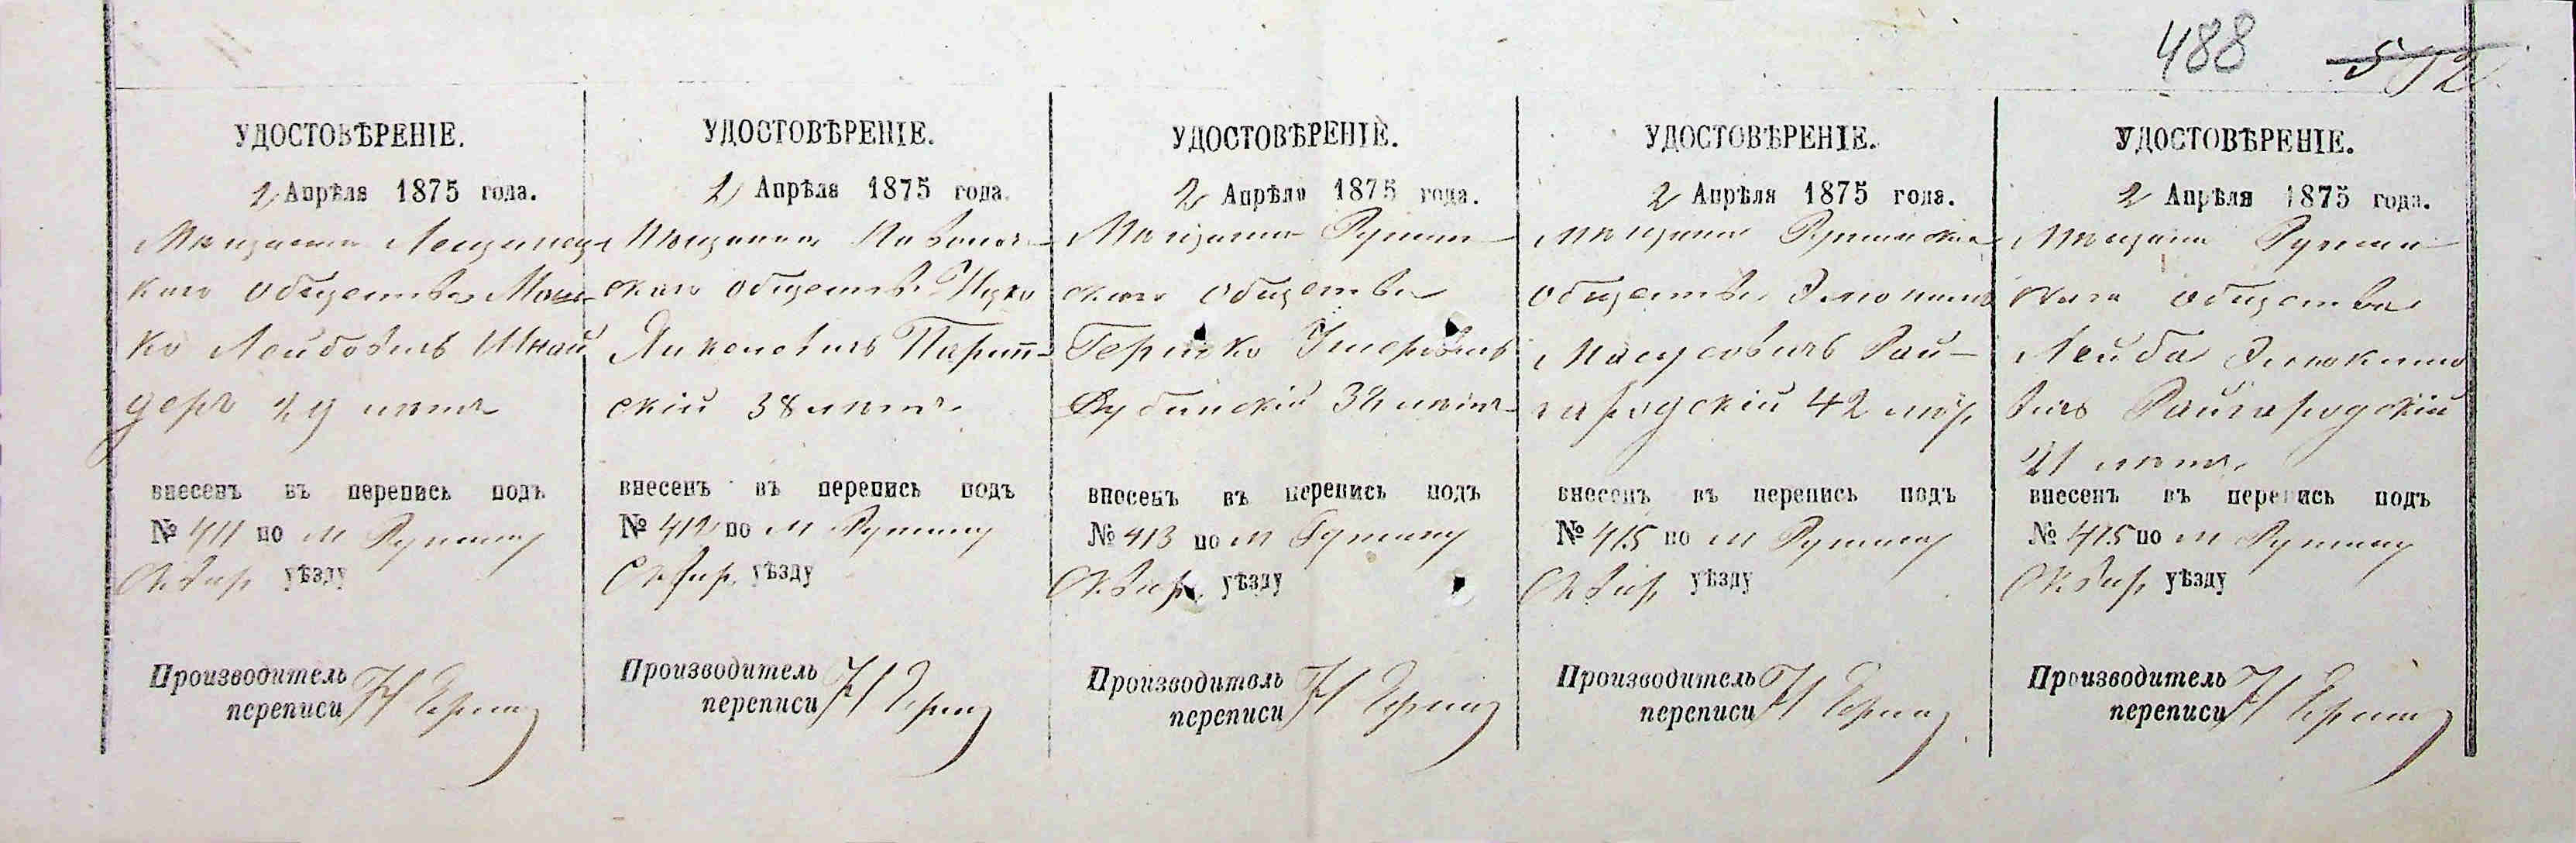 488
512
УДОСТОВѢРЕНІЕ.
2 Апрѣля 1875 года.
Мѣщанин
каго общества Мош-
ко Лейбовичъ Шнай
деръ 29 лѣтъ
внесенъ въ перепись подъ
№ 411 по м Ружину
Сквир. уѣзду
Производитель
переписи
УДОСТОВѢРЕНІЕ.
2 Апрѣля 1875 года.
Мѣщанинъ Паволоч-
скаго общества Ицко
Янкелевичъ
скій 38 лѣтъ
внесенъ въ перепись подъ
№ 412 по м Ружину
Сквир. уѣзду
Производитель
переписи
УДОСТОВѢРЕНІЕ.
2 Апрѣля 1875 года.
Мѣщанин Ружин-
скаго общества
Гершко Ушеровичъ
Дубинскій лѣтъ
внесенъ въ перепись подъ
№ 413 по м Ружину
Сквир. уѣзду
Производитель
переписи
УДОСТОВѢРЕНІЕ.
2 Апрѣля 1875 года.
Мѣщанин Ружинска
общества Элюкимъ
Мошковичъ Рай-
городскій 42 лѣт
внесенъ въ перепись подъ
№ 415 по м Ружину
Сквир. уѣзду
Производитель
переписи
УДОСТОВѢРЕНІЕ.
2 Апрѣля 1875 года.
Мѣщанин Ружин
скаго общества
Лейба Элюкимо
вичъ Райгородскій
21 лѣтъ
внесенъ въ перепись подъ
№ 415 по м Ружину
Сквир. уѣзду
Производитель
переписи